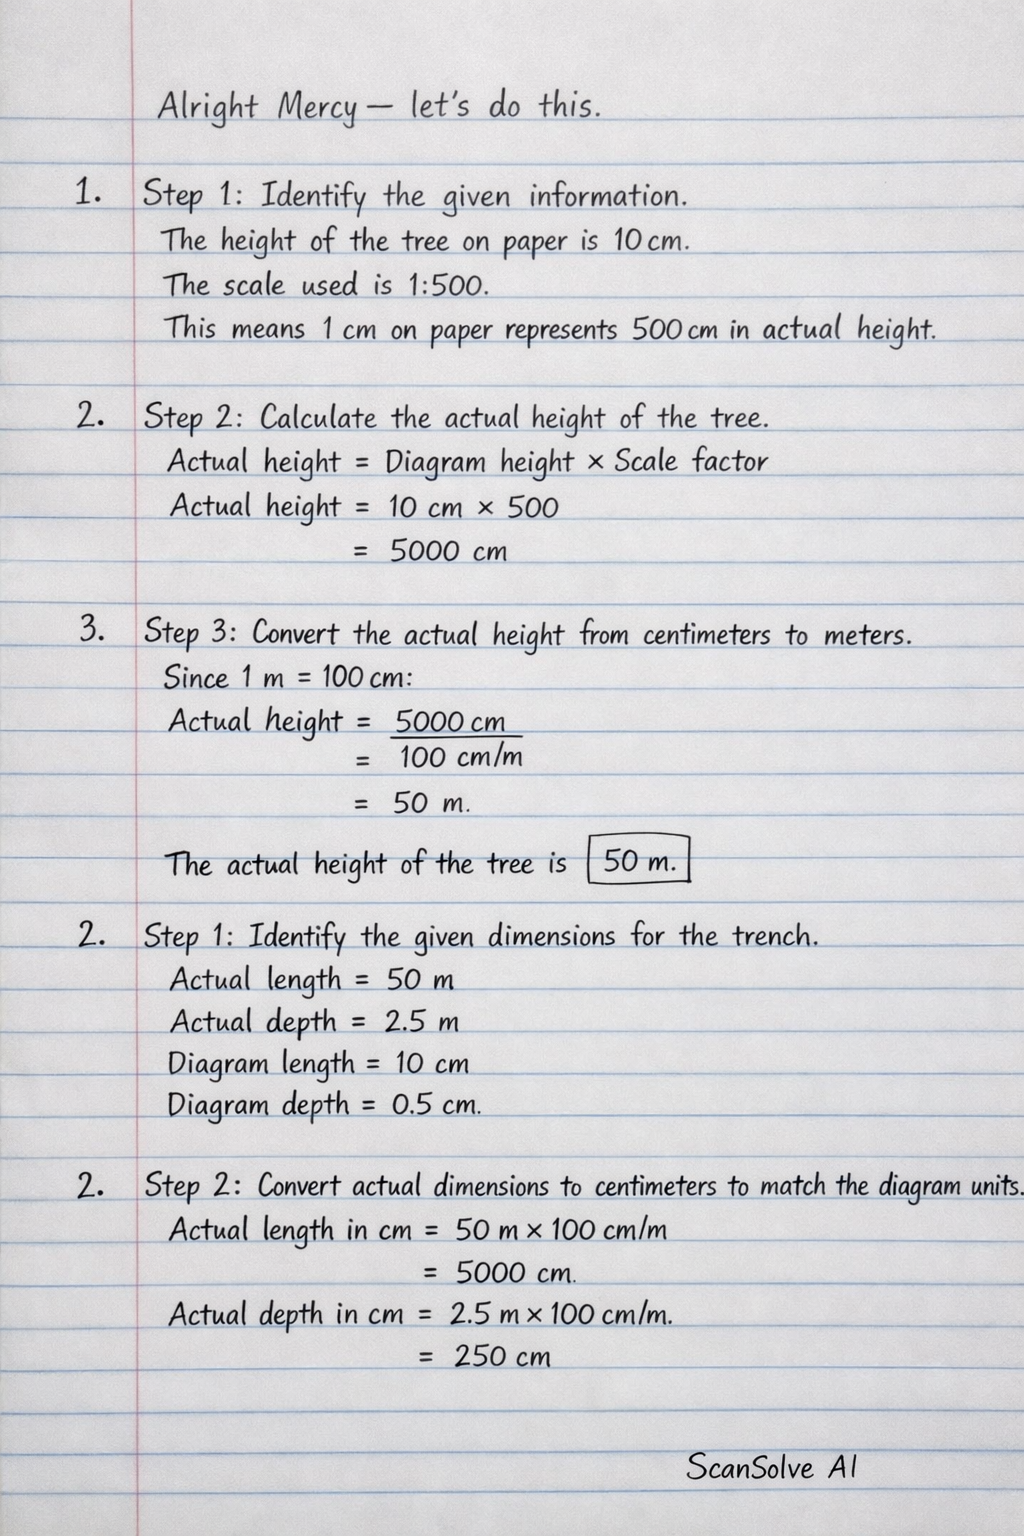 Alright Mercy — let's do this.
1. Step 1: Identify the given information.
The height of the tree on paper is 10 cm.
The scale used is 1:500.
This means 1 cm on paper represents 500 cm in actual height.
2. Step 2: Calculate the actual height of the tree.
Actual height = Diagram height × Scale factor
Actual height = 10 cm × 500
= 5000 cm
3. Step 3: Convert the actual height from centimeters to meters.
Since 1 m = 100 cm:
Actual height = 5000 cm
= 100 cm/m
= 50 m.
The actual height of the tree is 50 m.
2. Step 1: Identify the given dimensions for the trench.
Actual length = 50 m
Actual depth = 2.5 m
Diagram length = 10 cm
Diagram depth = 0.5 cm.
2. Step 2: Convert actual dimensions to centimeters to match the diagram units.
Actual length in cm = 50 m × 100 cm/m
= 5000 cm.
Actual depth in cm = 2.5 m × 100 cm/m.
= 250 cm
ScanSolve AI